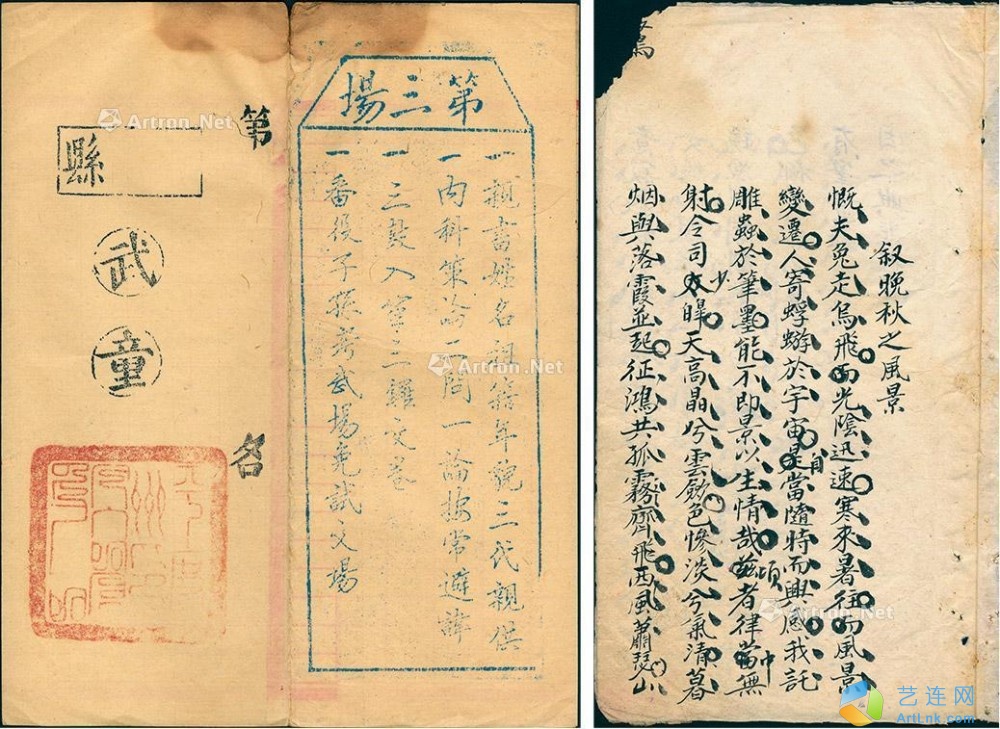 第三場
一親書姓名祖籍年貌三代親供
一內科策論二問一論按常避諱
一三鼓入室三鑼交卷
一番役子孫考武場免試文場
第 名
縣
武童
敘晚秋之風景
慨夫兔走烏飛而光陰迅速寒來暑往而風景
變遷人寄蜉蝣於宇宙是當隨時而興感我託
雕蟲於筆墨能不即景以生情哉茲者律當無
射令司少皞天高晶兮雲斂色慘淡兮氣清暮
烟與落霞並起征鴻共孤霧齊飛西風蕭瑟山
Artron.Net
Artron.Net
Artron.Net
Artron.Net
艺连网
ArtLnk.com